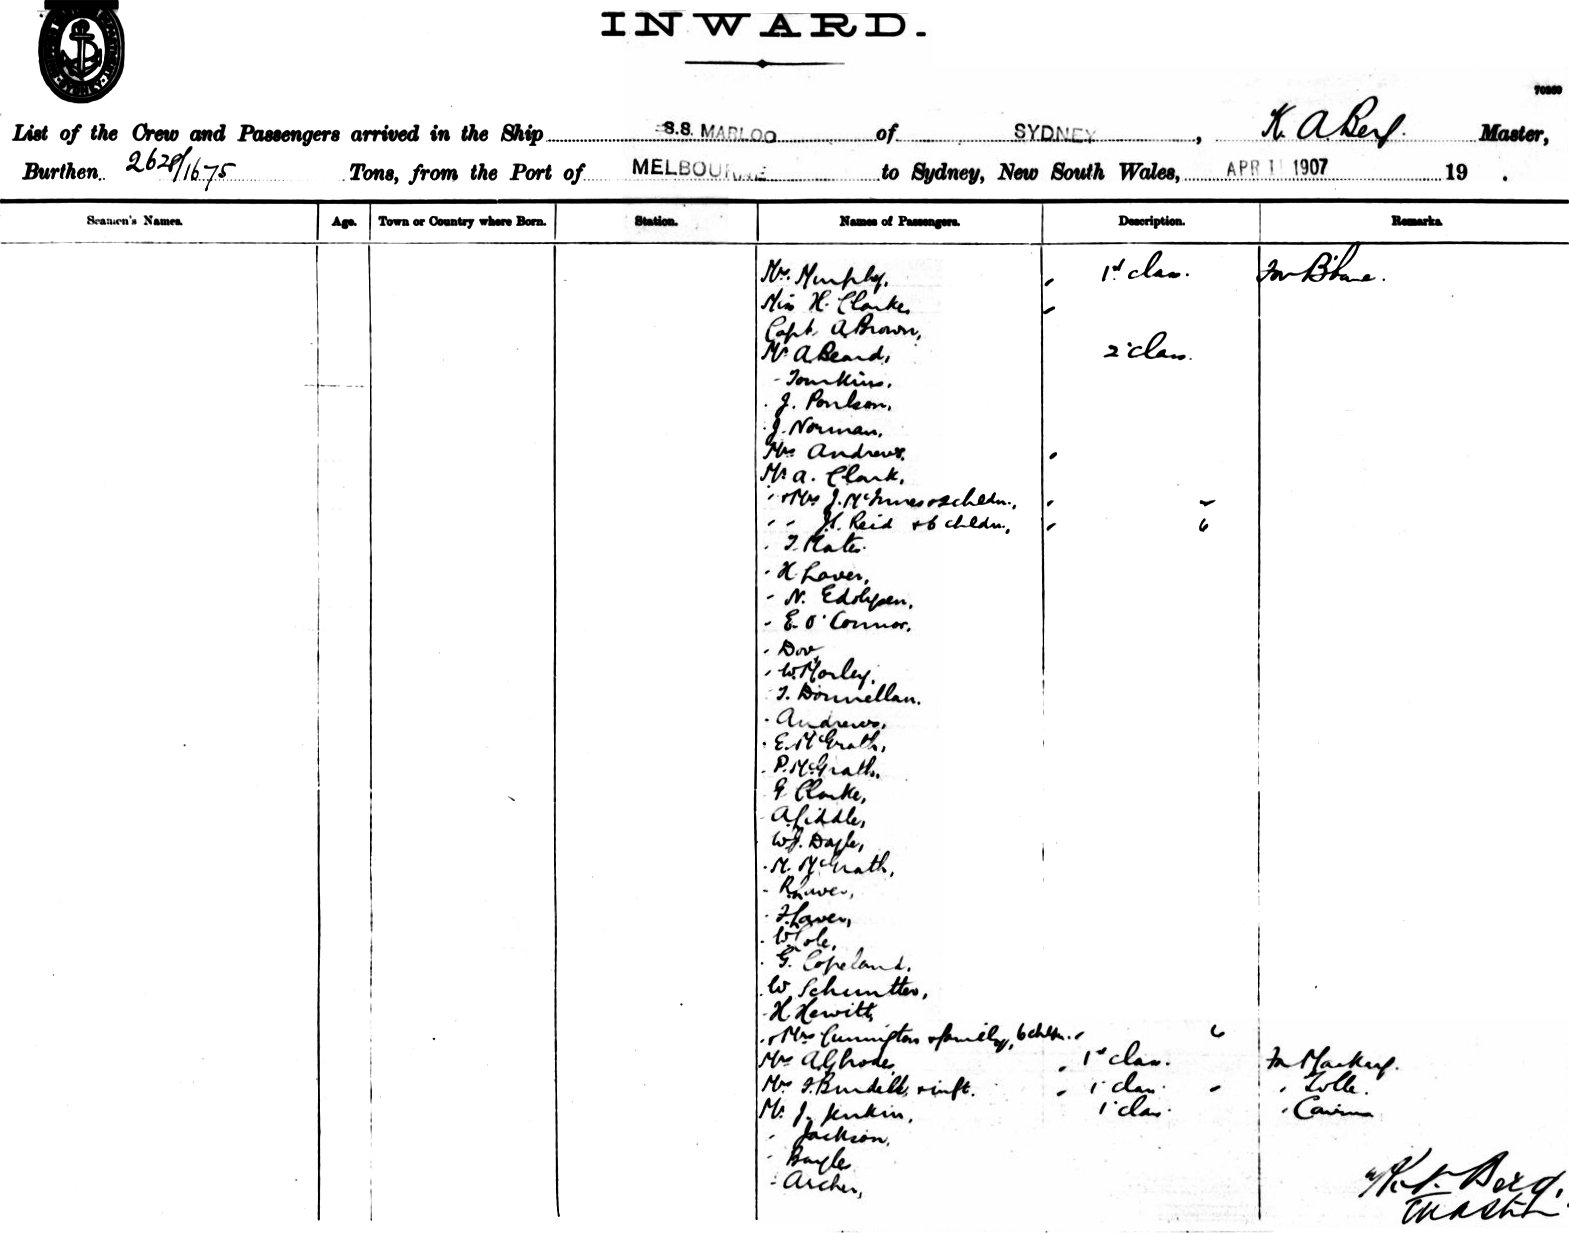 INWARD.
70260
List of the Crew and Passengers arrived in the Ship S.S. MARLOO of SYDNEY, K. A Berg. Master,
Burthen 2628/1675 Tons, from the Port of MELBOURNE to Sydney, New South Wales, APR 1 1907 19 .
Seamen's Names. Age. Town or Country where Born. Station. Names of Passengers. Description. Remarks.
Mrs. Murphy, 1st class. For B'bane.
Miss H. Clarke,
Capt. A Brown,
Mr A Beard, 2 class.
- Tomkins,
. J. Poulson,
. J. Norman,
Mrs Andrews,
Mr A. Clark,
" & Mrs J. McInnes & 2 childn.,
" " H. Reid & 6 childn., 6
. T. Mates.
. H. Laver,
- N.
- E. O'Connor,
. Dov
. W. Morley,
T. Donnellan.
. Andrews,
. E. McGrath,
. P. McGrath,
G. Clarke,
A. Liddle,
W. J. Dayle,
. M. McGrath,
- R. Laver,
. F. Laver,
. W. Cole,
. G. Copeland,
W Schuntter,
. H. Hewitt,
. & Mrs Cunnington & family, 6 childn. 6
Mrs A 1st class. For Mackay.
Mrs F. Burdell, & inft. 1 class. " T'ville.
Mr J. Jenkin, 1 class. " Cairns
" Jackson,
" Bayles
- Archer,
K. A. Berg,
Master